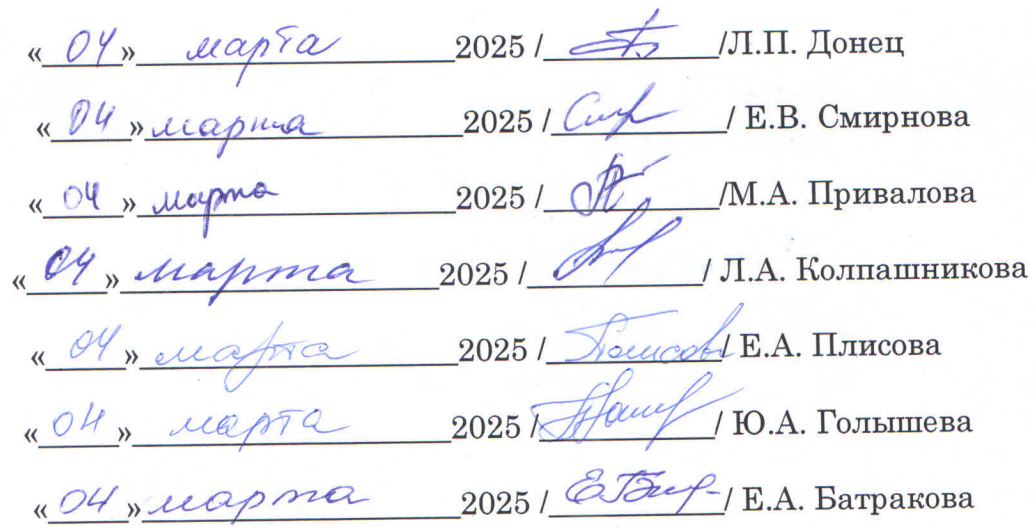 «04» марта 2025 / /Л.П. Донец
«04» марта 2025 / / Е.В. Смирнова
«04» марта 2025 / /М.А. Привалова
«04» марта 2025 / / Л.А. Колпашникова
«04» марта 2025 / / Е.А. Плисова
«04» марта 2025 / / Ю.А. Голышева
«04» марта 2025 / / Е.А. Батракова